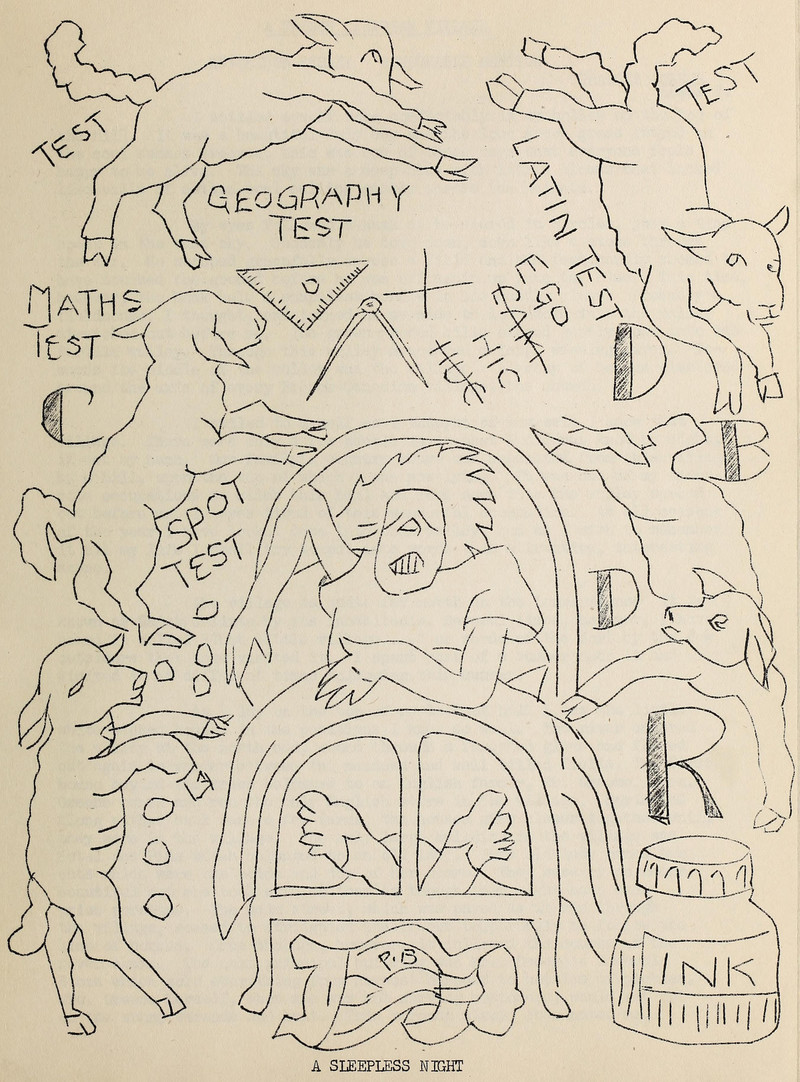 TEST
TEST
GEOGRAPHY
TEST
LATIN TEST
EGO
CANT
HIC
HUC
MATHS
TEST
C
D
B
SPOT
TEST
D
R
INK
P.B
A SLEEPLESS NIGHT